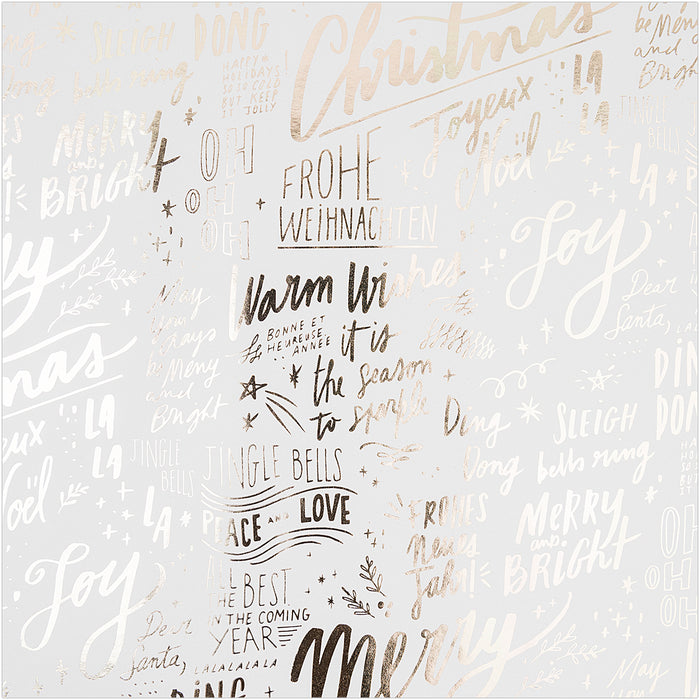 SLEIGH
DONG
bells rung
HAPPY
HOLIDAYS!
SO SO COOL
BUT KEEP
IT JOLLY
Christmas
be Merry
and
Bright
LA
LA
JINGLE
BELLS
LA
MERRY
and
BRIGHT
OH
OH
OH
Joyeux
Noël
FROHE
WEIHNACHTEN
Joy
Dear
Santa,
Warm Wishes
May
Your
Days
be Merry
and
Bright
BONNE ET
HEUREUSE
ANNÉE
it is
the season
to sparkle
LA
LA
JINGLE
BELLS
LA
JINGLE BELLS
PEACE AND LOVE
Ding
Dong
SLEIGH
bells rung
DING
DONG
FROHES
Neues
Jahr!
MERRY
and
BRIGHT
OH
OH
OH
Joy
Dear
Santa,
ALL
THE BEST
IN THE COMING
YEAR
LALALALALA
DING
Merry
May